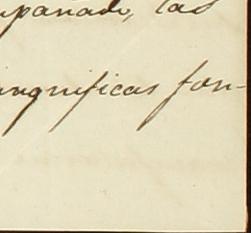 mpanado, las
magnificas fon-